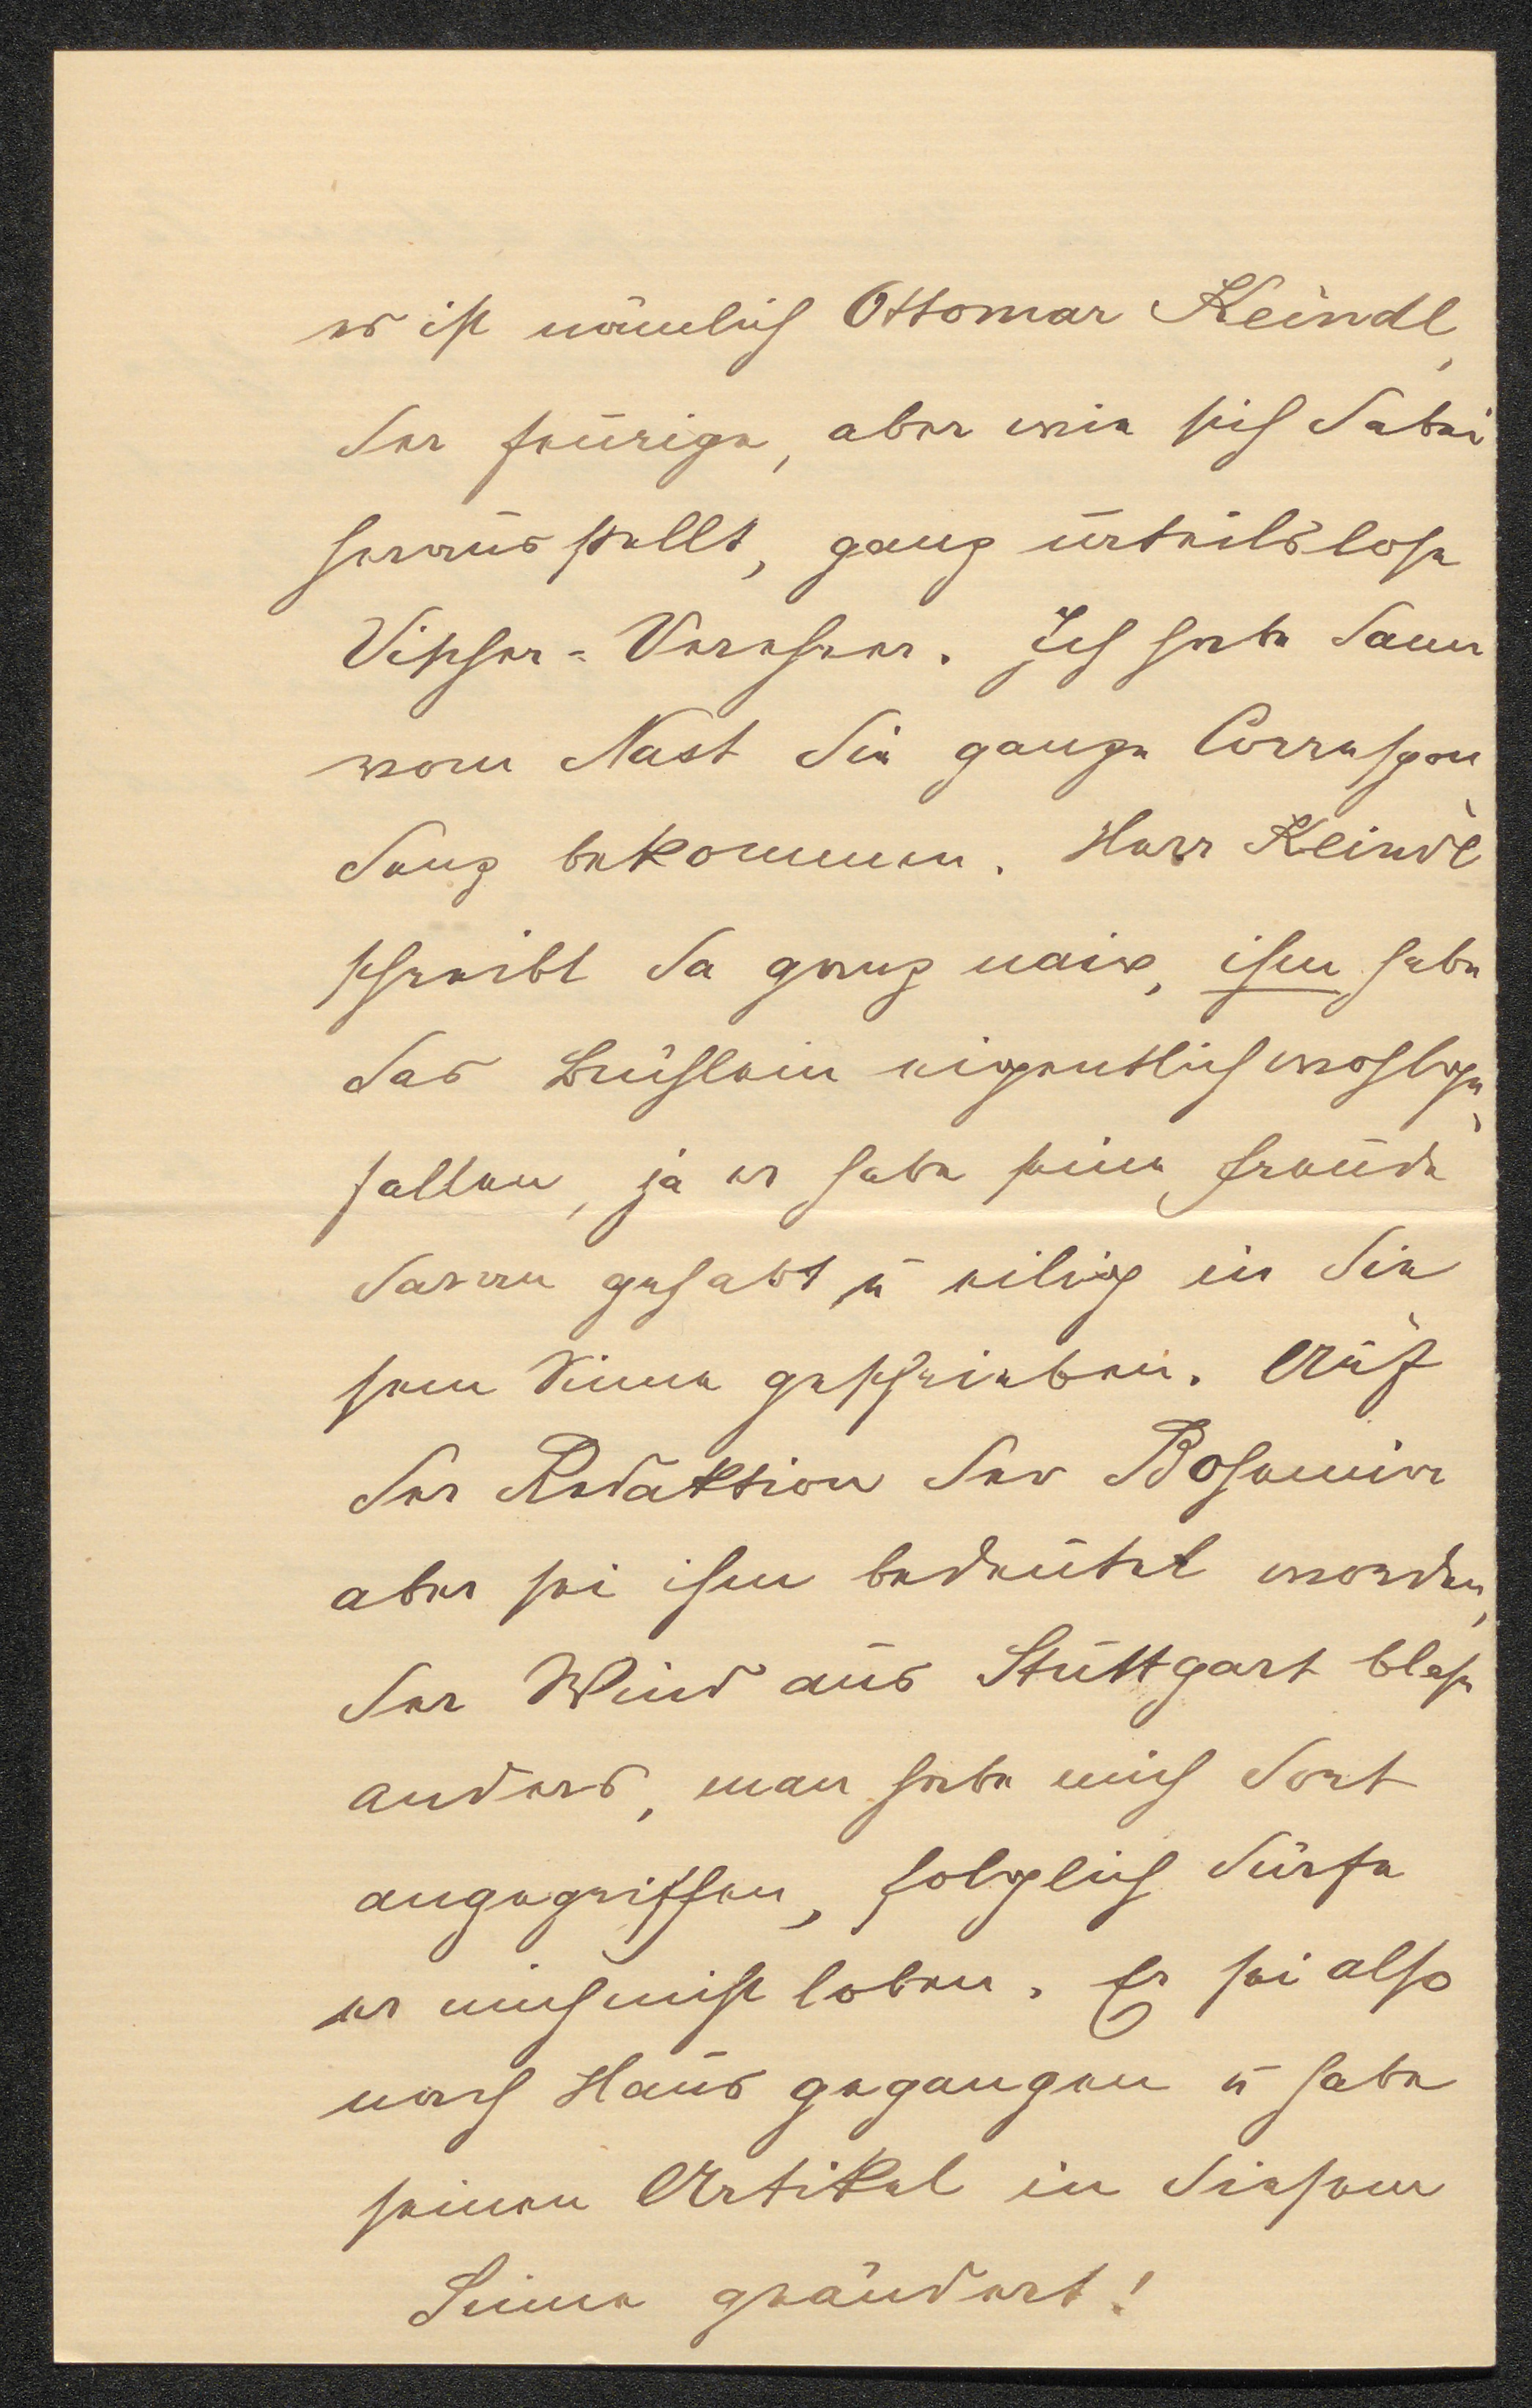 es ist nämlich Ottomar Keindl,
der feurige, aber wie sich dabei
herausstellt, ganz urteilslose
Vischer-Verehrer. Ich habe dann
vom Nast die ganze Correspon
denz bekommen. Herr Keindl
schreibt da ganz naiv, ihm habe
das Büchlein eigentlich wohlge
fallen, ja er habe seine Freude
daran gehabt u eilig in die
sem Sinne geschrieben. Auf
der Redaktion der Bohemia
aber sei ihm bedeutet worden,
der Wind aus Stuttgart blase
anders, man habe mich dort
angegriffen, folglich dürfe
er mich nicht loben. Er sei also
nach Haus gegangen u habe
seinen Artikel in diesem
Sinne geändert!